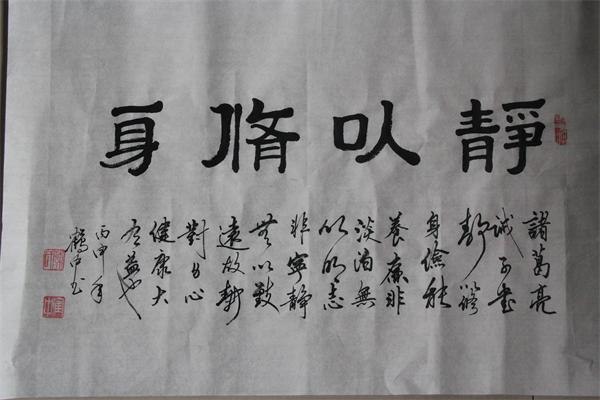 靜以脩身
諸葛亮
誡子書
靜以脩
身儉能
養廉非
淡泊無
以明志
非寧靜
無以致
遠故靜
對身心
健康大
有益也
丙申年
鶴中書